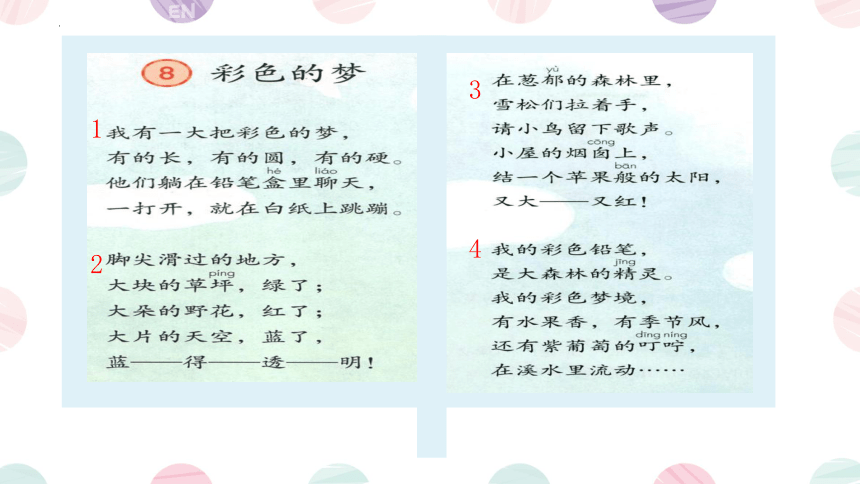 EN
8 彩色的梦
1
我有一大把彩色的梦，
有的长，有的圆，有的硬。
hé liáo
他们躺在铅笔盒里聊天，
一打开，就在白纸上跳蹦。
2
脚尖滑过的地方，
píng
大块的草坪，绿了；
大朵的野花，红了；
大片的天空，蓝了，
蓝——得——透——明！
3
yù
在葱郁的森林里，
雪松们拉着手，
请小鸟留下歌声。
cōng
小屋的烟囱上，
bān
结一个苹果般的太阳，
又大——又红！
4
我的彩色铅笔，
jīng
是大森林的精灵。
我的彩色梦境，
有水果香，有季节风，
dīng níng
还有紫葡萄的叮咛，
在溪水里流动……